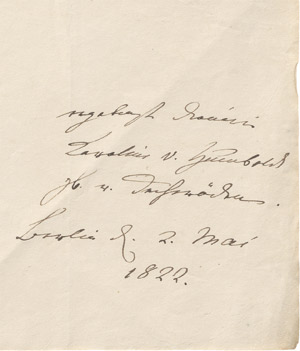 ergebenst Dienerin
Karoline v. Humboldt
geb. v. Dacheröden.
Berlin d. 2. Mai
1822.